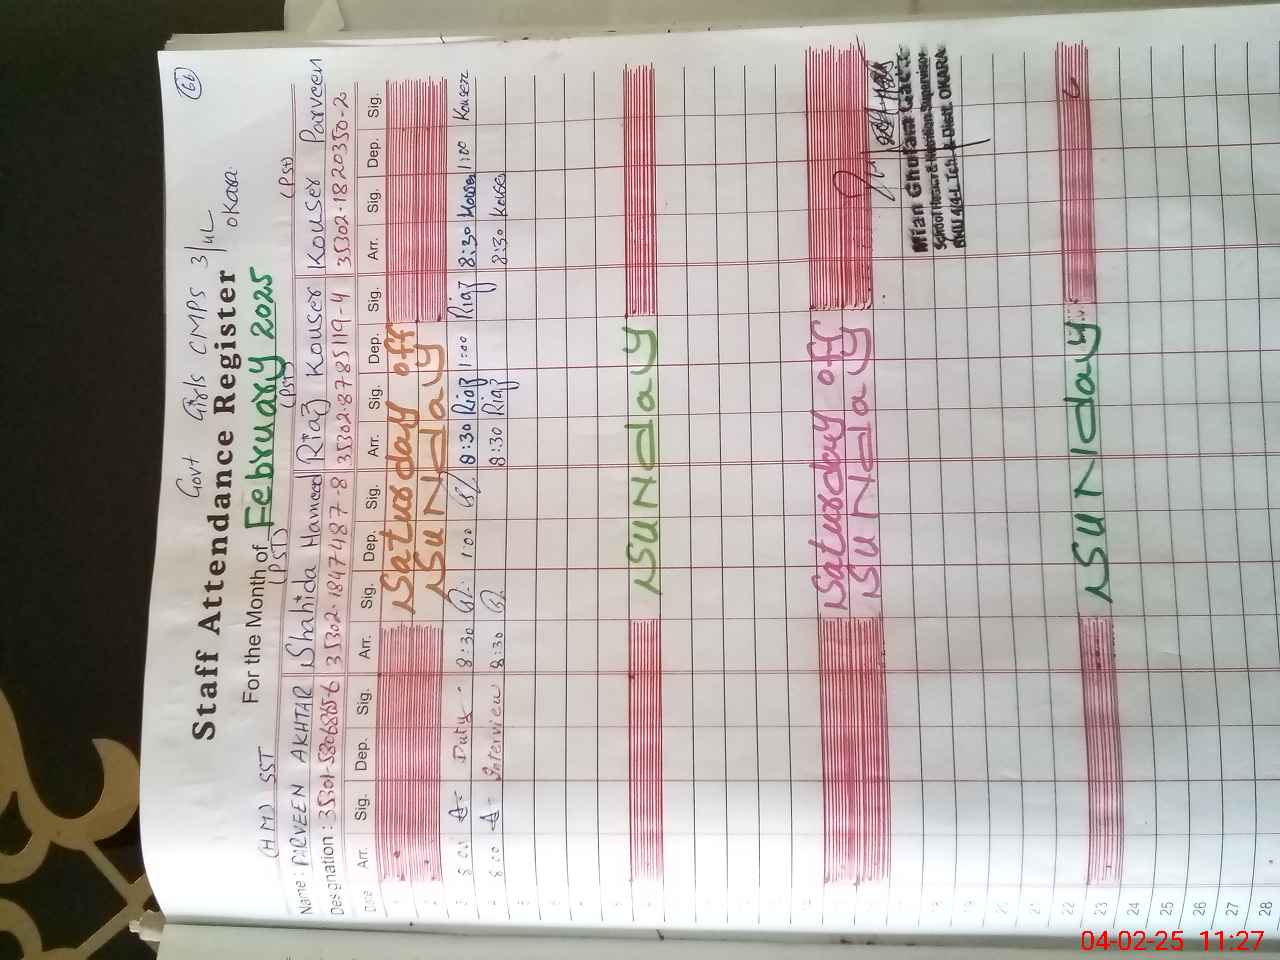 66
Govt Girls CMPS 3/4L
Okara
Staff Attendance Register
For the Month of February 2025
(HM) SST (PST) (PST) (PST)
Name: PARVEEN AKHTAR Shahida Hameed Riaz Kouser Kouser Parveen
Designation: 35301-5806865-6 35302-1847487-8 35302-8785119-4 35302-1820350-2
Date Arr. Sig. Dep. Sig. Arr. Sig. Dep. Sig. Arr. Sig. Dep. Sig. Arr. Sig. Dep. Sig.
1 Saturday off
2 SUNday
3 8:00 Duty 8:30 1:00 8:30 Riaz 1:00 Riaz 8:30 Kouser 1:00 Kouser
4 8:00 Interview 8:30 8:30 Riaz 8:30 Kouser
5
6
7
8
9 SUNday
14
15 Saturday off
16 SUNday
Mian Ghulam
School Health & Nutrition Supervisor
BHU 4/4-L Teh. & Distt. OKARA
18
19
20
21
22
23 SUNday
24
25
26
27
28
04-02-25 11:27